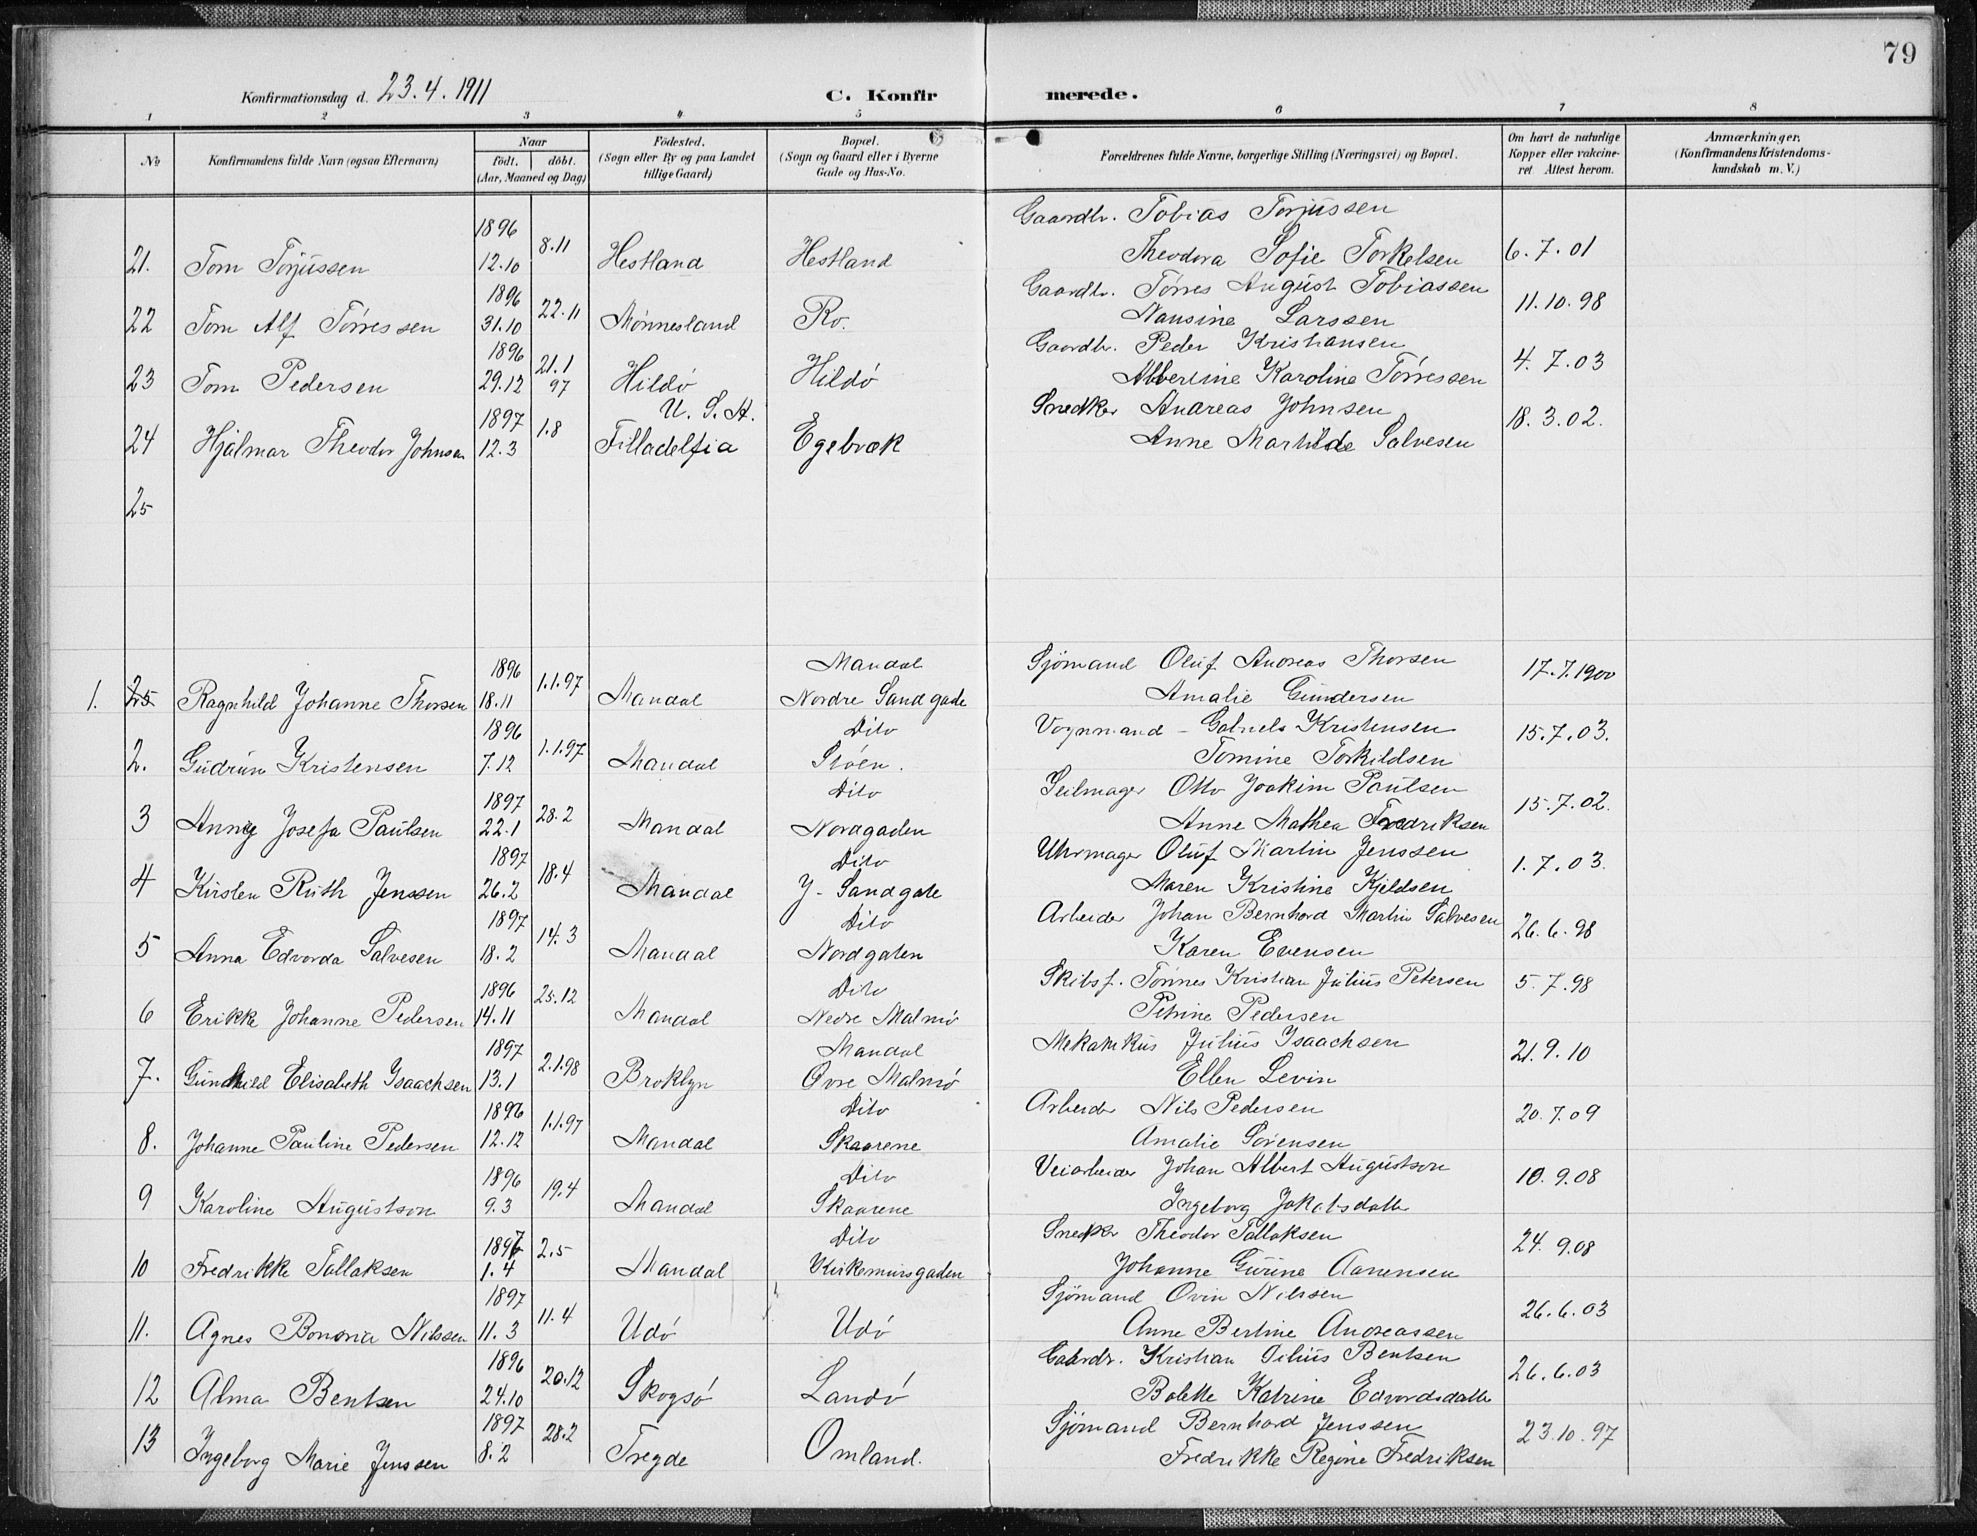 79
Konfirmationsdag d. 23.4.1911
C. Konfirmerede.
1 2 3 4 5 6 7 8
No Konfirmandens fulde Navn (ogsaa Efternavn) Naar Födt. döbt. (Aar, Maaned og Dag) Födested. (Sogn eller By og paa Landet tillige Gaard) Bopæl. (Sogn og Gaard eller i Byerne Gade og Hus-No. Forældrenes fulde Navne, borgerlige Stilling (Næringsvei) og Bopæl. Om havt de naturlige Kopper eller vakcineret Attest herom. Anmærkninger. (Konfirmandens Kristendomskundskab m. V.)
1896 Gaardbr. Tobias Torjussen
21. Tom Torjussen 12.10 8.11 Hestland Hestland Theodora Sofie Torkelsen 6.7.01
1896 Gaardbr. Tørres August Tobiassen
22 Tom Alf Tørressen 31.10 22.11 Mønnesland Ro. Nansine Larssen 11.10.98
1896 Gaardbr. Peder Kristiansen
23 Tom Pedersen 29.12 21.1 97 Hildø Hildø Albertine Karoline Tørressen 4.7.03
1897 U.S.A. Snedker Andreas Johnsen
24 Hjalmar Theodor Johnsen 12.3 1.8 Filladelfia Egebræk Anne Mathilde Salvesen 18.3.02.
25
1896 Mandal Sjömand Oluf Andreas Thorsen
1. 25 Ragnhild Johanne Thorsen 18.11 1.1.97 Mandal Nordre Sandgade Amalie Gundersen 17.7.1900
1896 Dito Vognmand - Gabriels Kristensen
2. Gudrun Kristensen 7.12 1.1.97 Mandal Støen. Tomine Torkildsen 15.7.03.
1897 Dito Seilmager Otto Joakim Paulsen
3 Anny Josefa Paulsen 22.1 28.2 Mandal Nordgaden Anne Mathea Fredriksen 15.7.02.
1897 Dito Uhrmager Oluf Martin Jenssen
4 Kirsten Ruth Jenssen 26.2 18.4 Mandal Y-Sandgate Maren Kristine Kjeldsen 1.7.03.
1897 Dito Arbeider Johan Bernhard Martin Salvesen
5 Anna Edvarda Salvesen 18.2 14.3 Mandal Nordgaten Karen Evensen 26.6.98
1896 Dito Skibsf. Tønnes Kristian Julius Petersen
6 Erikke Johanne Pedersen 14.11 25.12 Mandal Nedre Malmø Petrine Pedersen 5.7.98
1897 Mandal Mekanikus Julius Isaachsen
7. Gunhild Elisabeth Isaachsen 13.1 2.1.98 Broklyn Øvre Malmø Ellen Levin 21.9.10
1896 Dito Arbeider Nils Pedersen
8. Johanne Pauline Pedersen 12.12 1.1.97 Mandal Skaarene Amalie Sørensen 20.7.09
1896 Dito Veiarbeider Johan Albert Augustson
9 Karoline Augustson 9.3 19.4 Mandal Skaarene Ingeborg Jakobsdatter 10.9.08
1897 Dito Snedker Theodor Tallaksen
10 Fredrikke Tallaksen 1.4 2.5 Mandal Kirkemursgaden Johanne Gurine Aanensen 24.9.08
1897 Sjömand Ovin Nilssen
11. Agnes Nilssen 11.3 11.4 Udø Udø Anne Bertine Andreassen 26.6.03
1896 Gaardr. Kristian Bentsen
12 Alma Bentsen 24.10 20.12 Skogsø Landø Bolette Katrine Edvardsdatter 26.6.03
1897 Sjömand Bernhard Jenssen
13 Ingeborg Marie Jenssen 8.2 28.2 Tregde Omland. Fredrikke Regine Fredriksen 23.10.97